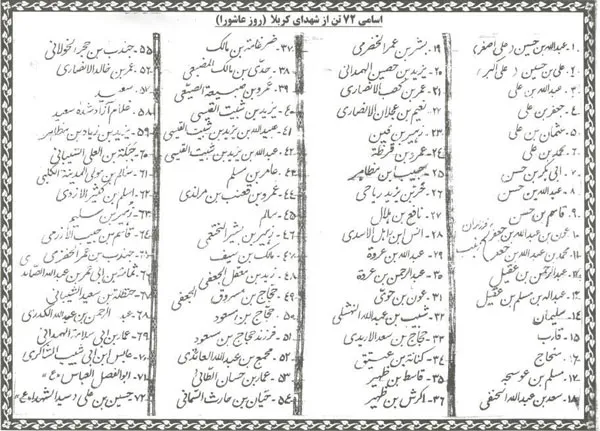 اسامی ۷۲ تن از شهدای کربلا (روز عاشورا)
۱- عبدالله بن حسین (علی اصغر)
۲- علی بن حسین (علی اکبر)
۳- عبدالله بن علی
۴- جعفر بن علی
۵- عثمان بن علی
۶- محمد بن علی
۷- ابی بکر بن حسن
۸- عبدالله بن حسن
۹- قاسم بن حسن
۱۰- عون بن عبدالله بن جعفر
۱۱- محمد بن عبدالله بن جعفر
فرزندان زینب
۱۲- عبدالرحمن بن عقیل
۱۳- عبدالله بن مسلم بن عقیل
۱۴- سلیمان
۱۵- قارب
۱۶- منحاج
۱۷- مسلم بن عوسجه
۱۸- سعد بن عبدالله الحنفی
۱۹- بشر بن عمر الخضرمی
۲۰- یزید بن حصین الهمدانی
۲۱- عمر بن کعب الانصاری
۲۲- نعیم بن عجلان الانصاری
۲۳- زهیر بن قین
۲۴- عمرو بن قرظة
۲۵- حبیب بن مظاهر
۲۶- حر بن یزید ریاحی
۲۷- نافع بن هلال
۲۸- انس بن کاهل الاسدی
۲۹- عبدالله بن عروة
۳۰- عبدالرحمن بن عروة
۳۱- عون بن حوی
۳۲- شبیب بن عبدالله النهشلی
۳۳- حجاج بن سعد الاربدی
۳۴- کنانة بن عتیق
۳۵- قاسط بن ظهیر
۳۶- کرش بن ظهیر
۳۷- ضرغامة بن مالک
۳۸- حدی بن مالک الضبعی
۳۹- عمرو بن ضبیعة الضبعی
۴۰- یزید بن ثبیت القیسی
۴۱- عبیدالله بن یزید بن ثبیت القیسی
۴۲- عبدالله بن یزید بن ثبیت القیسی
۴۳- عامر بن مسلم
۴۴- عمرو بن قعنب بن مرلدی
۴۵- سالم
۴۶- زهیر بن بشیر الخثعمی
۴۷- مالک بن سیف
۴۸- زید بن معقل الجعفی
۴۹- حجاج بن مسروق الجعفی
۵۰- حجاج بن مسعود
۵۱- فرزند حجاج بن مسعود
۵۲- مجمع بن عبدالله العائذی
۵۳- عمار بن حسان الطائی
۵۴- حیان بن حارث السمانی
۵۵- جندب بن حجر الخولانی
۵۶- عمر بن خالد الانصاری
۵۷- سعید
۵۸- غلام آزاد شده سعید
۵۹- یزید بن زیاد بن مظاهر
۶۰- جبلة بن العلی الشیبانی
۶۱- سالم بن مولی المدینة الکلبی
۶۲- اسلم بن کثیر الازدی
۶۳- زهیر بن سلیم
۶۴- قاسم بن حبیب الازدی
۶۵- جندب بن حجر الخضرمی
۶۶- ثمامة بن ابی عمر بن عبدالله الصائد
۶۷- حنظلة بن سعید الشیبانی
۶۸- عبدالرحمن بن عبدالله الکدری
۶۹- عمار بن ابی سلامة الهمدانی
۷۰- عابس بن ابی شبیب الشاکری
۷۱- ابوالفضل العباس «ع»
۷۲- حسین بن علی (سیدالشهداء «ع»)